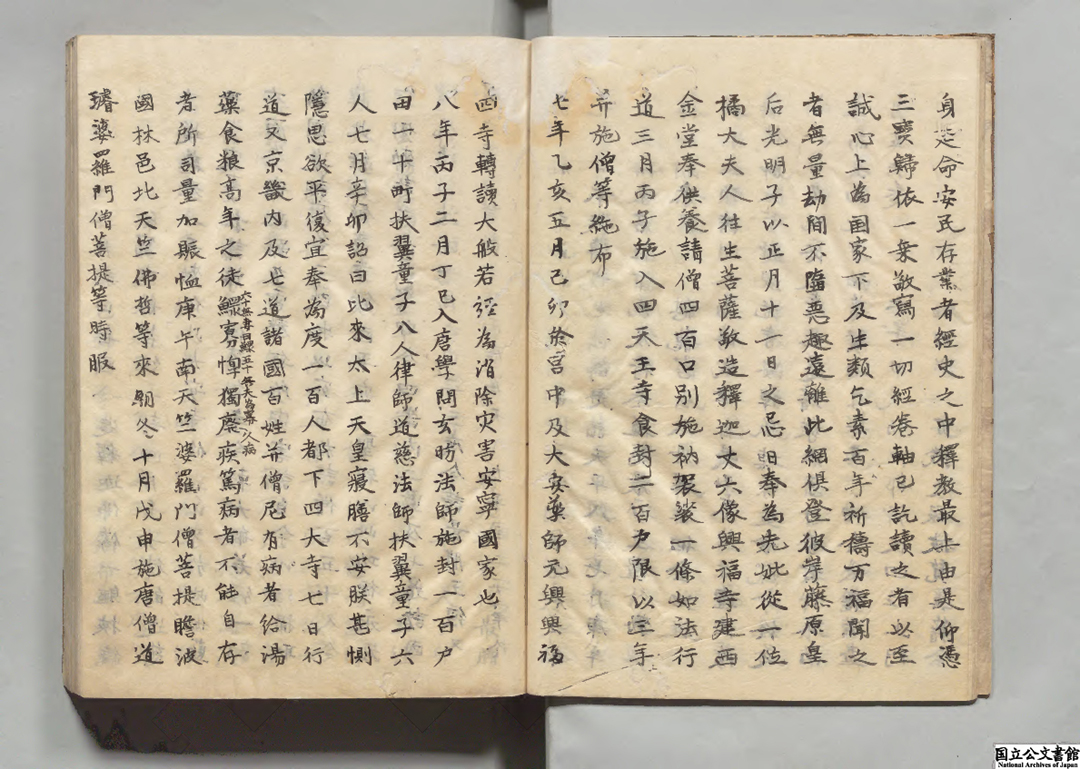 身延命安民存業者經史之中釋教最上由是仰憑
三寳歸依一乗敬寫一切經卷軸已訖讀之者以至
誠心上為国家下及生類乞素百年祈禱万福聞之
者無量劫間不墮悪趣遠離此網俱登彼岸藤原皇
后光明子以正月十一日之忌日奉為先妣從一位
橘大夫人往生菩薩敬造釋迦丈六像興福寺建西
金堂奉供養請僧四百口別施衲袈裟一條如法行
道三月丙子施入四天王寺食封二百戸限以三年
并施僧等絁布
七年乙亥五月己卯於宮中及大安薬師元興興福
四寺轉讀大般若経為消除灾害安寧國家也
八年丙子二月丁巳入唐學問玄昉法師施封一百戸
田一十町扶翼童子八人律師道慈法師扶翼童子六
人七月辛卯詔曰比來太上天皇寢膳不安朕甚惻
隠思欲平復宜奉為度一百人都下四大寺七日行
道又京畿内及七道諸國百姓并僧尼有病者給湯
藥食粮高年之徒鰥寡惸獨癈疾篤病者不能自存
六十無妻曰鰥五十無夫為寡久病
者所司量加賑恤庚午南天竺婆羅門僧菩提瞻波
國林邑北天竺佛哲等來朝冬十月戊申施唐僧道
璿婆羅門僧菩提等時服
国立公文書館
National Archives of Japan